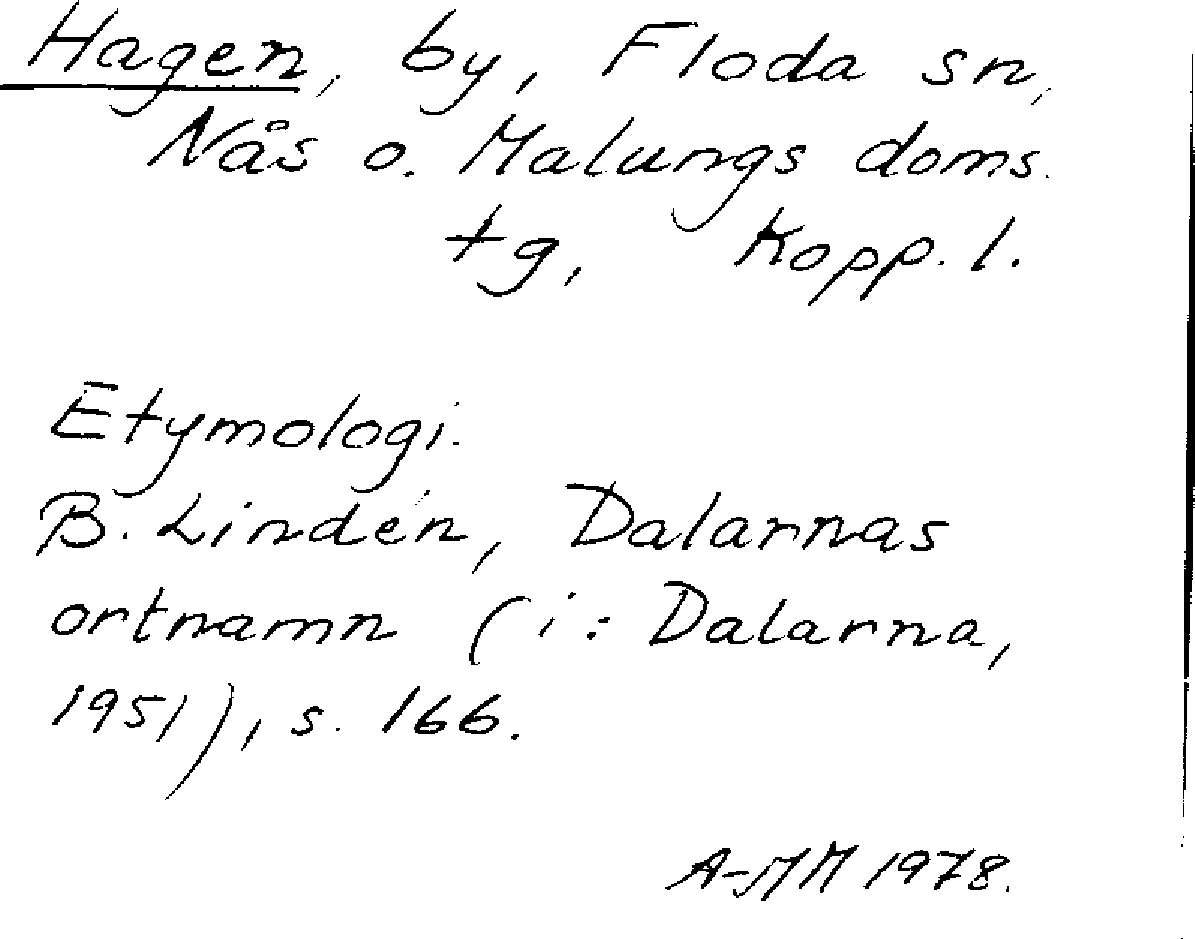 Hagen, by, Floda sn,
Nås o. Malungs doms.
tg, Kopp. l.
Etymologi.
B. Lindén, Dalarnas
ortnamn (i: Dalarna,
1951), s. 166.
A-MM 1978.